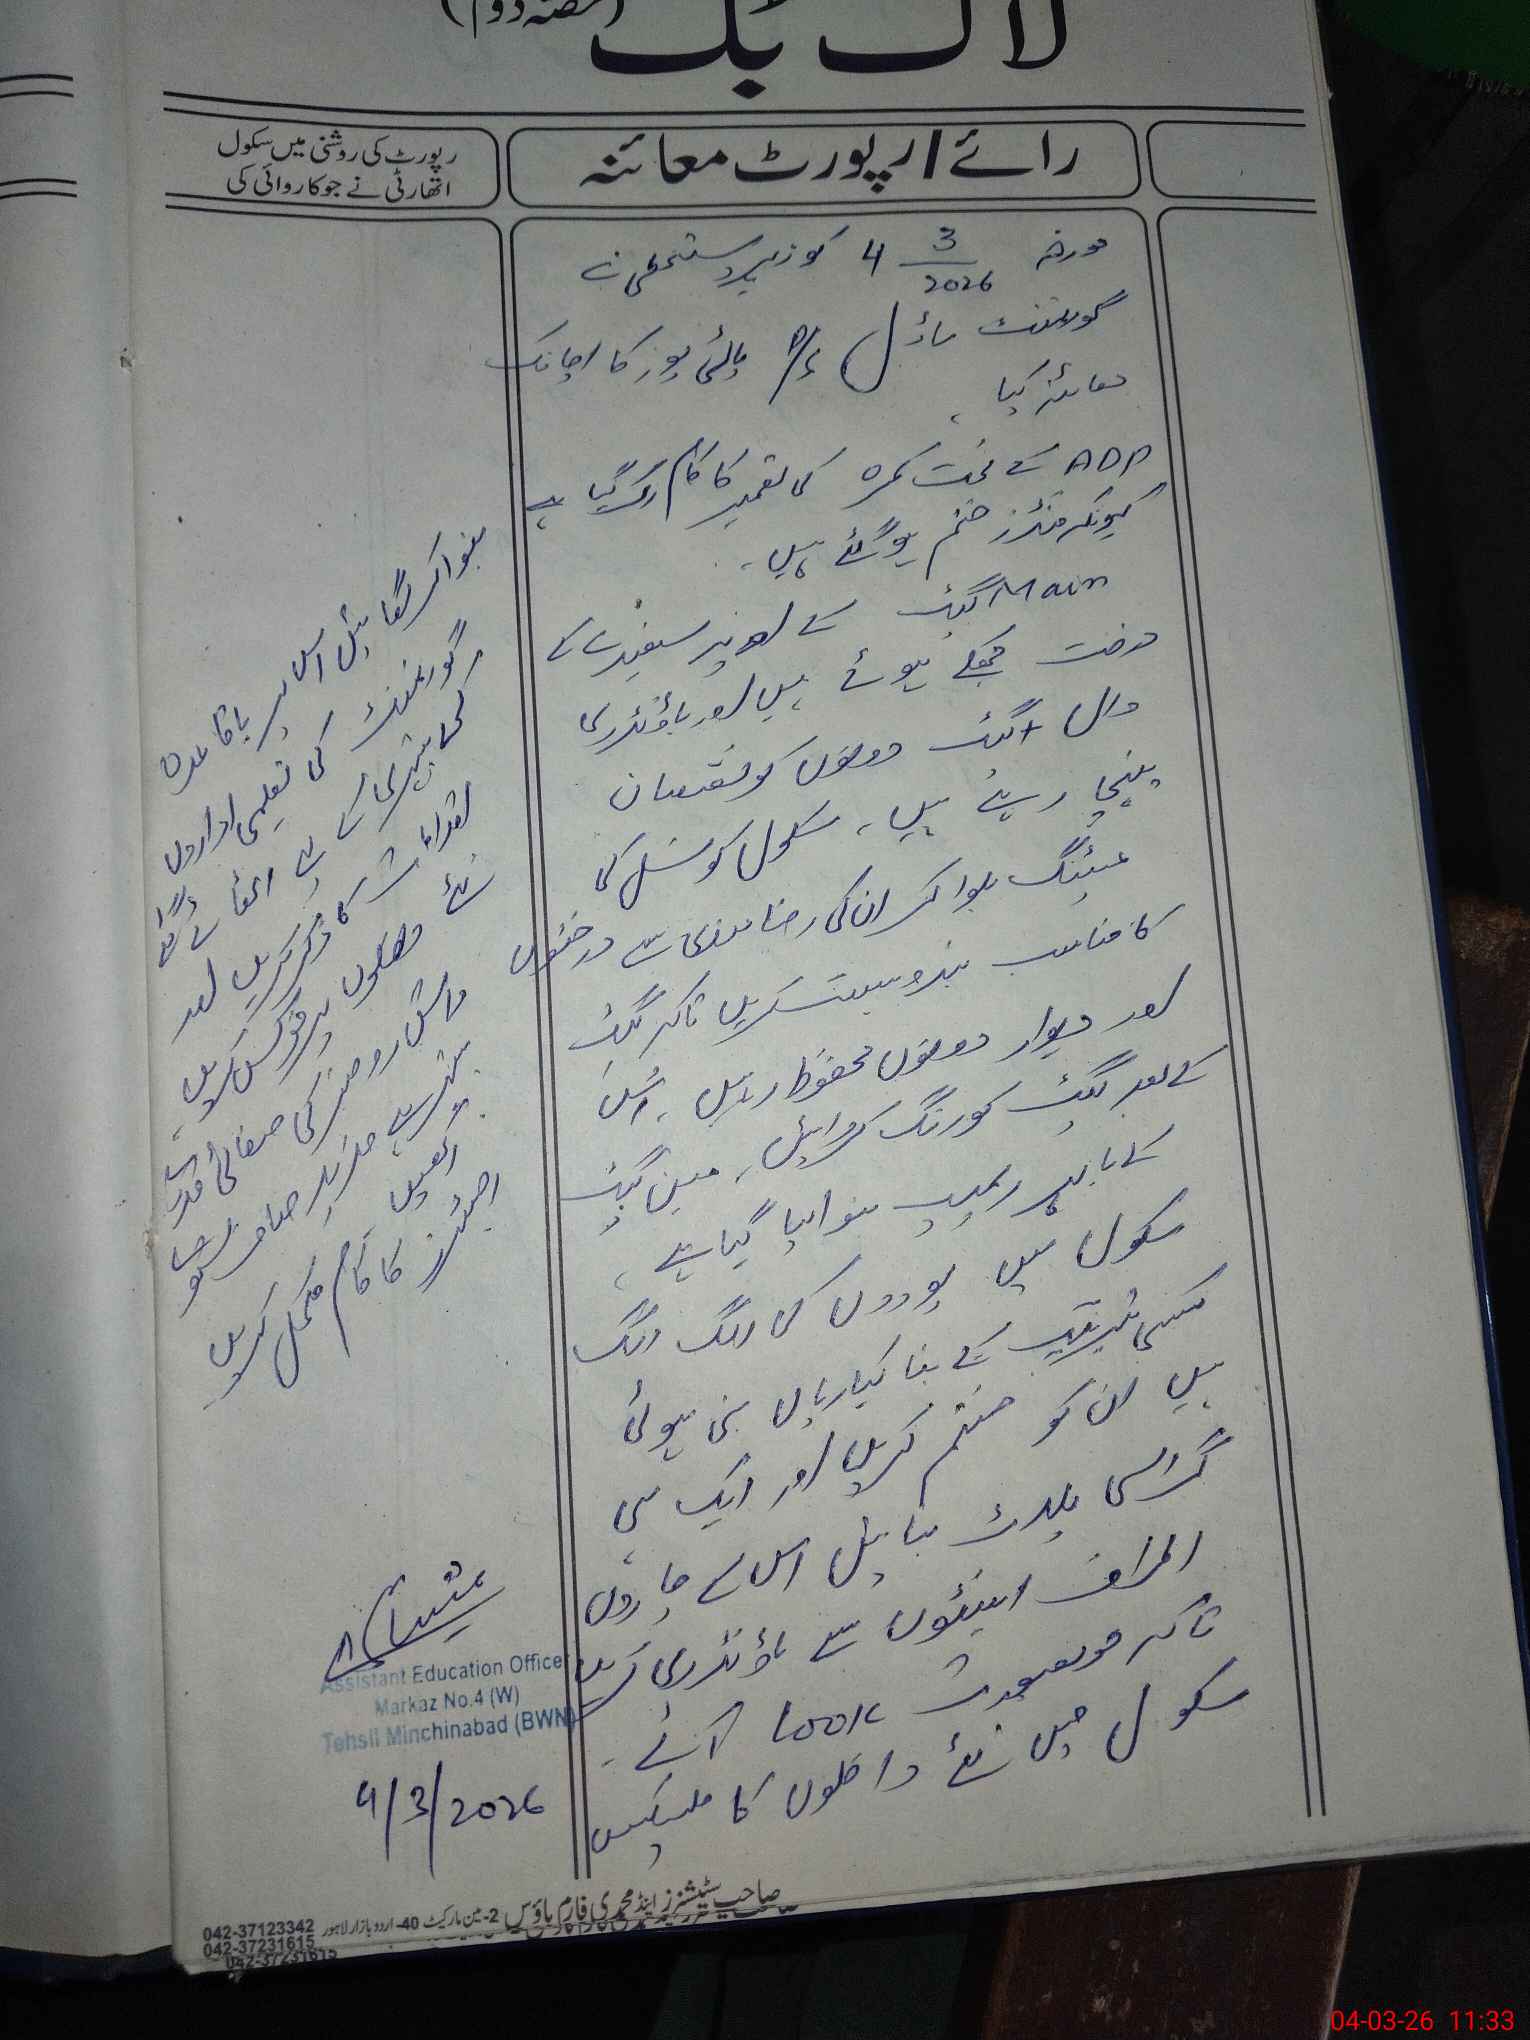 لاگ بک (حصہ دوم)
رائے / رپورٹ معائنہ
رپورٹ کی روشنی میں سکول
اتھارٹی نے جو کاروائی کی
مورخہ 4 3/2026 کو زیر دستخطی نے
گورنمنٹ ماڈل P/S کا اچانک
معائنہ کیا۔
ADP کے تحت کمرہ کی تعمیر کا کام رک گیا ہے
کیونکہ فنڈز ختم ہو گئے ہیں۔
Main گیٹ کے اوپر سفیدے کے
درخت جھکے ہوئے ہیں اور باؤنڈری
وال + گیٹ دونوں کو نقصان
پہنچا رہے ہیں۔ سکول کونسل کی
میٹنگ بلوا کر ان کی رضامندی سے درختوں
کا مناسب بندوبست کریں تاکہ گیٹ
اور دیوار دونوں محفوظ رہیں۔ اس
کے بعد گیٹ کو رنگ کروائیں۔ مین گیٹ
کے باہر ریمپ بنوایا گیا ہے۔
سکول میں پودوں کی الگ الگ
کسی ترتیب کے بنا کیاریاں بنی ہوئی
ہیں ان کو ختم کریں اور ایک ہی
گراسی پلاٹ بنائیں اس کے چاروں
اطراف اینٹوں سے باؤنڈری کریں
تاکہ خوبصورت look آئے۔
سکول میں نئے داخلوں کا فلیکس
بنوا کر لگائیں اس پر باقاعدہ
گورنمنٹ کی تعلیمی اداروں
کی بہتری کے لیے اٹھائے گئے
اقدامات کا ذکر کریں اور
نئے داخلوں پر فوکس کریں۔
واش رومز کی صفائی قدرے
بہتر ہے مزید صاف
رکھیں۔
کا کام مکمل کریں
Assistant Education Officer
Markaz No.4 (W)
Tehsil Minchinabad (BWN)
4/3/2026
صاحب سٹیشنرز اینڈ محمدی فارم ہاؤس 2-مین مارکیٹ 40-اردو بازار لاہور 042-37123342
042-37231615
042-37231615
04-03-26 11:33